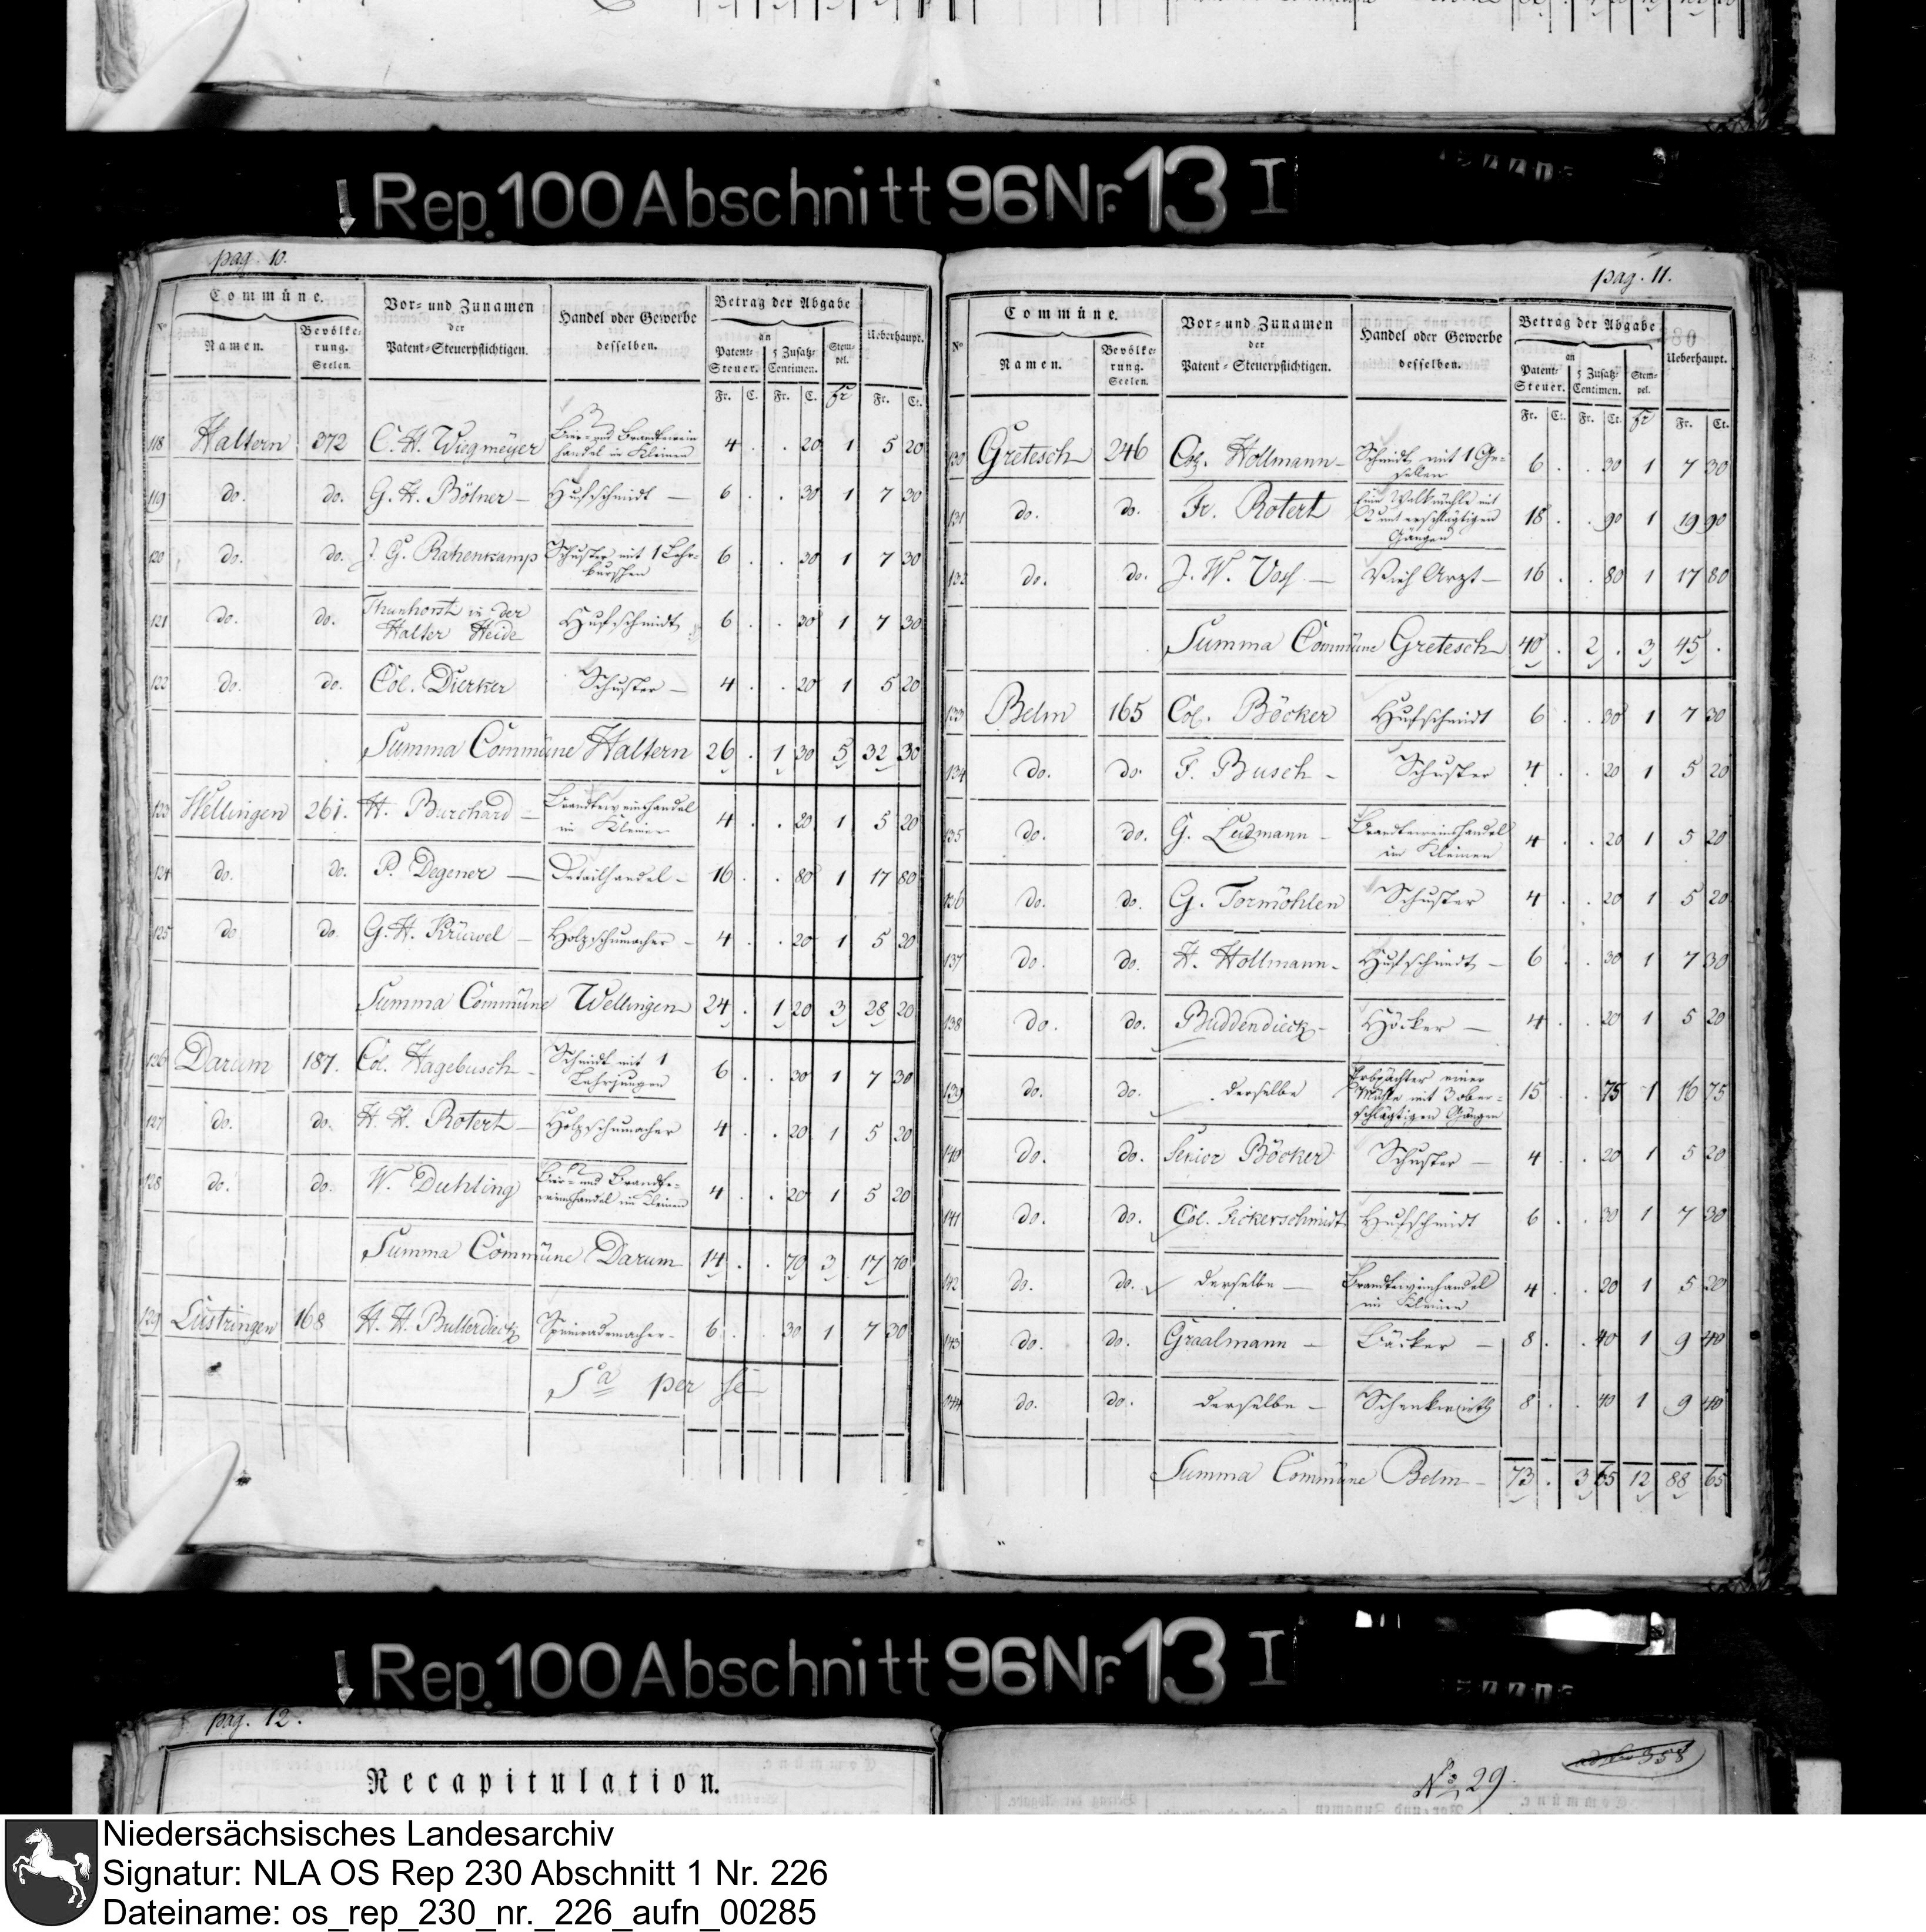 Rep. 100 Abschnitt 96 Nr. 13 I
pag. 10.
Commüne.
Vor- und Zunamen
der
Patent-Steuerpflichtigen.
Handel oder Gewerbe
desselben.
Betrag der Abgabe
an
Ueberhaupt.
No
Namen.
Bevölke-
rung.
Seelen.
Patent-
Steuer.
5 Zusatz-
Centimen.
Stem-
pel.
Fr. C. Fr. C. Fr Fr. Ct.
118 Haltern 372 C. H. Wiegmeyer Bier- und Brandtewein
handel im Kleinen 4 . . 20 1 5 20
119 do. do. G. H. Bölner – Hufschmidt – 6 . . 30 1 7 30
120 do. do. J. G. Rahenkamp Schuster mit 1 Lehr-
burschen 6 . . 30 1 7 30
121 do. do. Thunhorst in der
Halter Heide Hufschmidt 6 . . 30 1 7 30
122 do. do. Col. Dierker Schuster – 4 . . 20 1 5 20
Summa Commüne Haltern 26 . 1 30 5 32 30
123 Wellingen 261. H. Burchard – Brandteweinhandel
im Kleinen 4 . . 20 1 5 20
124 do. do. P. Degener – Detailhandel – 16 . . 80 1 17 80
125 do do. G. H. Krüwel – Holzschumacher – 4 . . 20 1 5 20
Summa Commüne Wellingen 24 . 1 20 3 28 20
126 Darum 187. Col. Hagebusch – Schmidt mit 1
Lehrjungen 6 . . 30 1 7 30
127 do. do. H. H. Rotert – Holzschumacher 4 . . 20 1 5 20
128 do. do. W. Duhling Bier- und Brandte-
weinhandel im Kleinen 4 . . 20 1 5 20
Summa Commüne Darum 14 . . 70 3 17 70
129 Lüstringen 168 H. H. Bullerdieck Spinradmacher – 6 . . 30 1 7 30
Sa per se
pag. 11.
Commüne.
Vor- und Zunamen
der
Patent-Steuerpflichtigen.
Handel oder Gewerbe
desselben.
Betrag der Abgabe
an
Ueberhaupt.
No
Namen.
Bevölke-
rung.
Seelen.
Patent-
Steuer.
5 Zusatz-
Centimen.
Stem-
pel.
Fr. Ct. Fr. Ct. Fr Fr. Ct.
130 Gretesch 246 Col. Hollmann – Schmidt mit 1 Ge-
sellen 6 . . 30 1 7 30
131 do. do. Fr. Rotert Eine Walkmühle mit
2 unterschlägtigen
Gängen 18 . . 90 1 19 90
132 do. do. J. W. Voss. – Vieh Arzt – 16 . . 80 1 17 80
Summa Commüne Gretesch 40 . 2 . 3 45 .
133 Belm 165 Col. Böcker Hufschmidt 6 . . 30 1 7 30
134 do. do. F. Busch – Schuster 4 . . 20 1 5 20
135 do. do. G. Ledmann – Brandteweinhandel
im Kleinen 4 . . 20 1 5 20
136 do. do. G. Tormöhlen Schuster 4 . . 20 1 5 20
137 do. do. H. Hollmann – Hufschmidt – 6 . . 30 1 7 30
138 do. do. Buddendieck – Höcker – 4 . . 20 1 5 20
139 do. do. derselbe Erbpächter einer
Mühle mit 3 ober-
schlägtigen Gängen 15 . . 75 1 16 75
140 do. do. Senior Böcker Schuster – 4 . . 20 1 5 20
141 do. do. Col. Fickerschmidt Hufschmidt 6 . . 30 1 7 30
142 do. do. derselbe – Brandteweinhandel
im Kleinen 4 . . 20 1 5 20
143 do. do. Graalmann – Bäcker – 8 . . 40 1 9 40
144 do. do. derselbe – Schenkwirth 8 . . 40 1 9 40
Summa Commüne Belm – 73 . 3 65 12 88 65
Rep. 100 Abschnitt 96 Nr. 13 I
pag. 12.
Recapitulation.
No 29.
Niedersächsisches Landesarchiv
Signatur: NLA OS Rep 230 Abschnitt 1 Nr. 226
Dateiname: os_rep_230_nr._226_aufn_00285